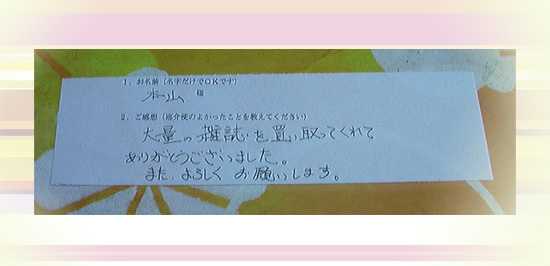 1. お名前（名字だけでOKです）
本山 様
2. ご感想（巡介便のよかったことを教えてください）
大量の雑誌を買い取ってくれて
ありがとうございました。
また、よろしくお願いします。